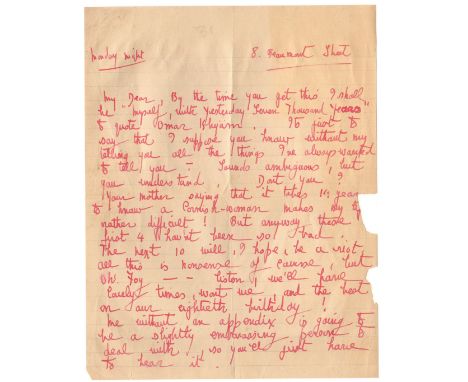 Monday night 8. Beaumont Street
My Dear By the time you get this I shall
be "myself, with Yesterday Seven Thousand Years"
to quote Omar Khyam. It's just to
say that I suppose you know without my
telling you all the things I've always wanted
to tell you — Sounds ambiguous, but
you understand, Dont you?
Your mother saying that it takes 14 years
to know a Cornish-woman makes my
rather difficult! But anyway these
first 4 hav'nt been so bad.
The next 10 will, I hope, be a rest
all this is nonsense of course, but
Oh. Joy — — listen, we'll have
lovely times, wont we, and the best
on our eightieth birthday!
Me without an appendix is going to
be a slightly embarrassing person to
deal with, so you'll just have
to bear it.